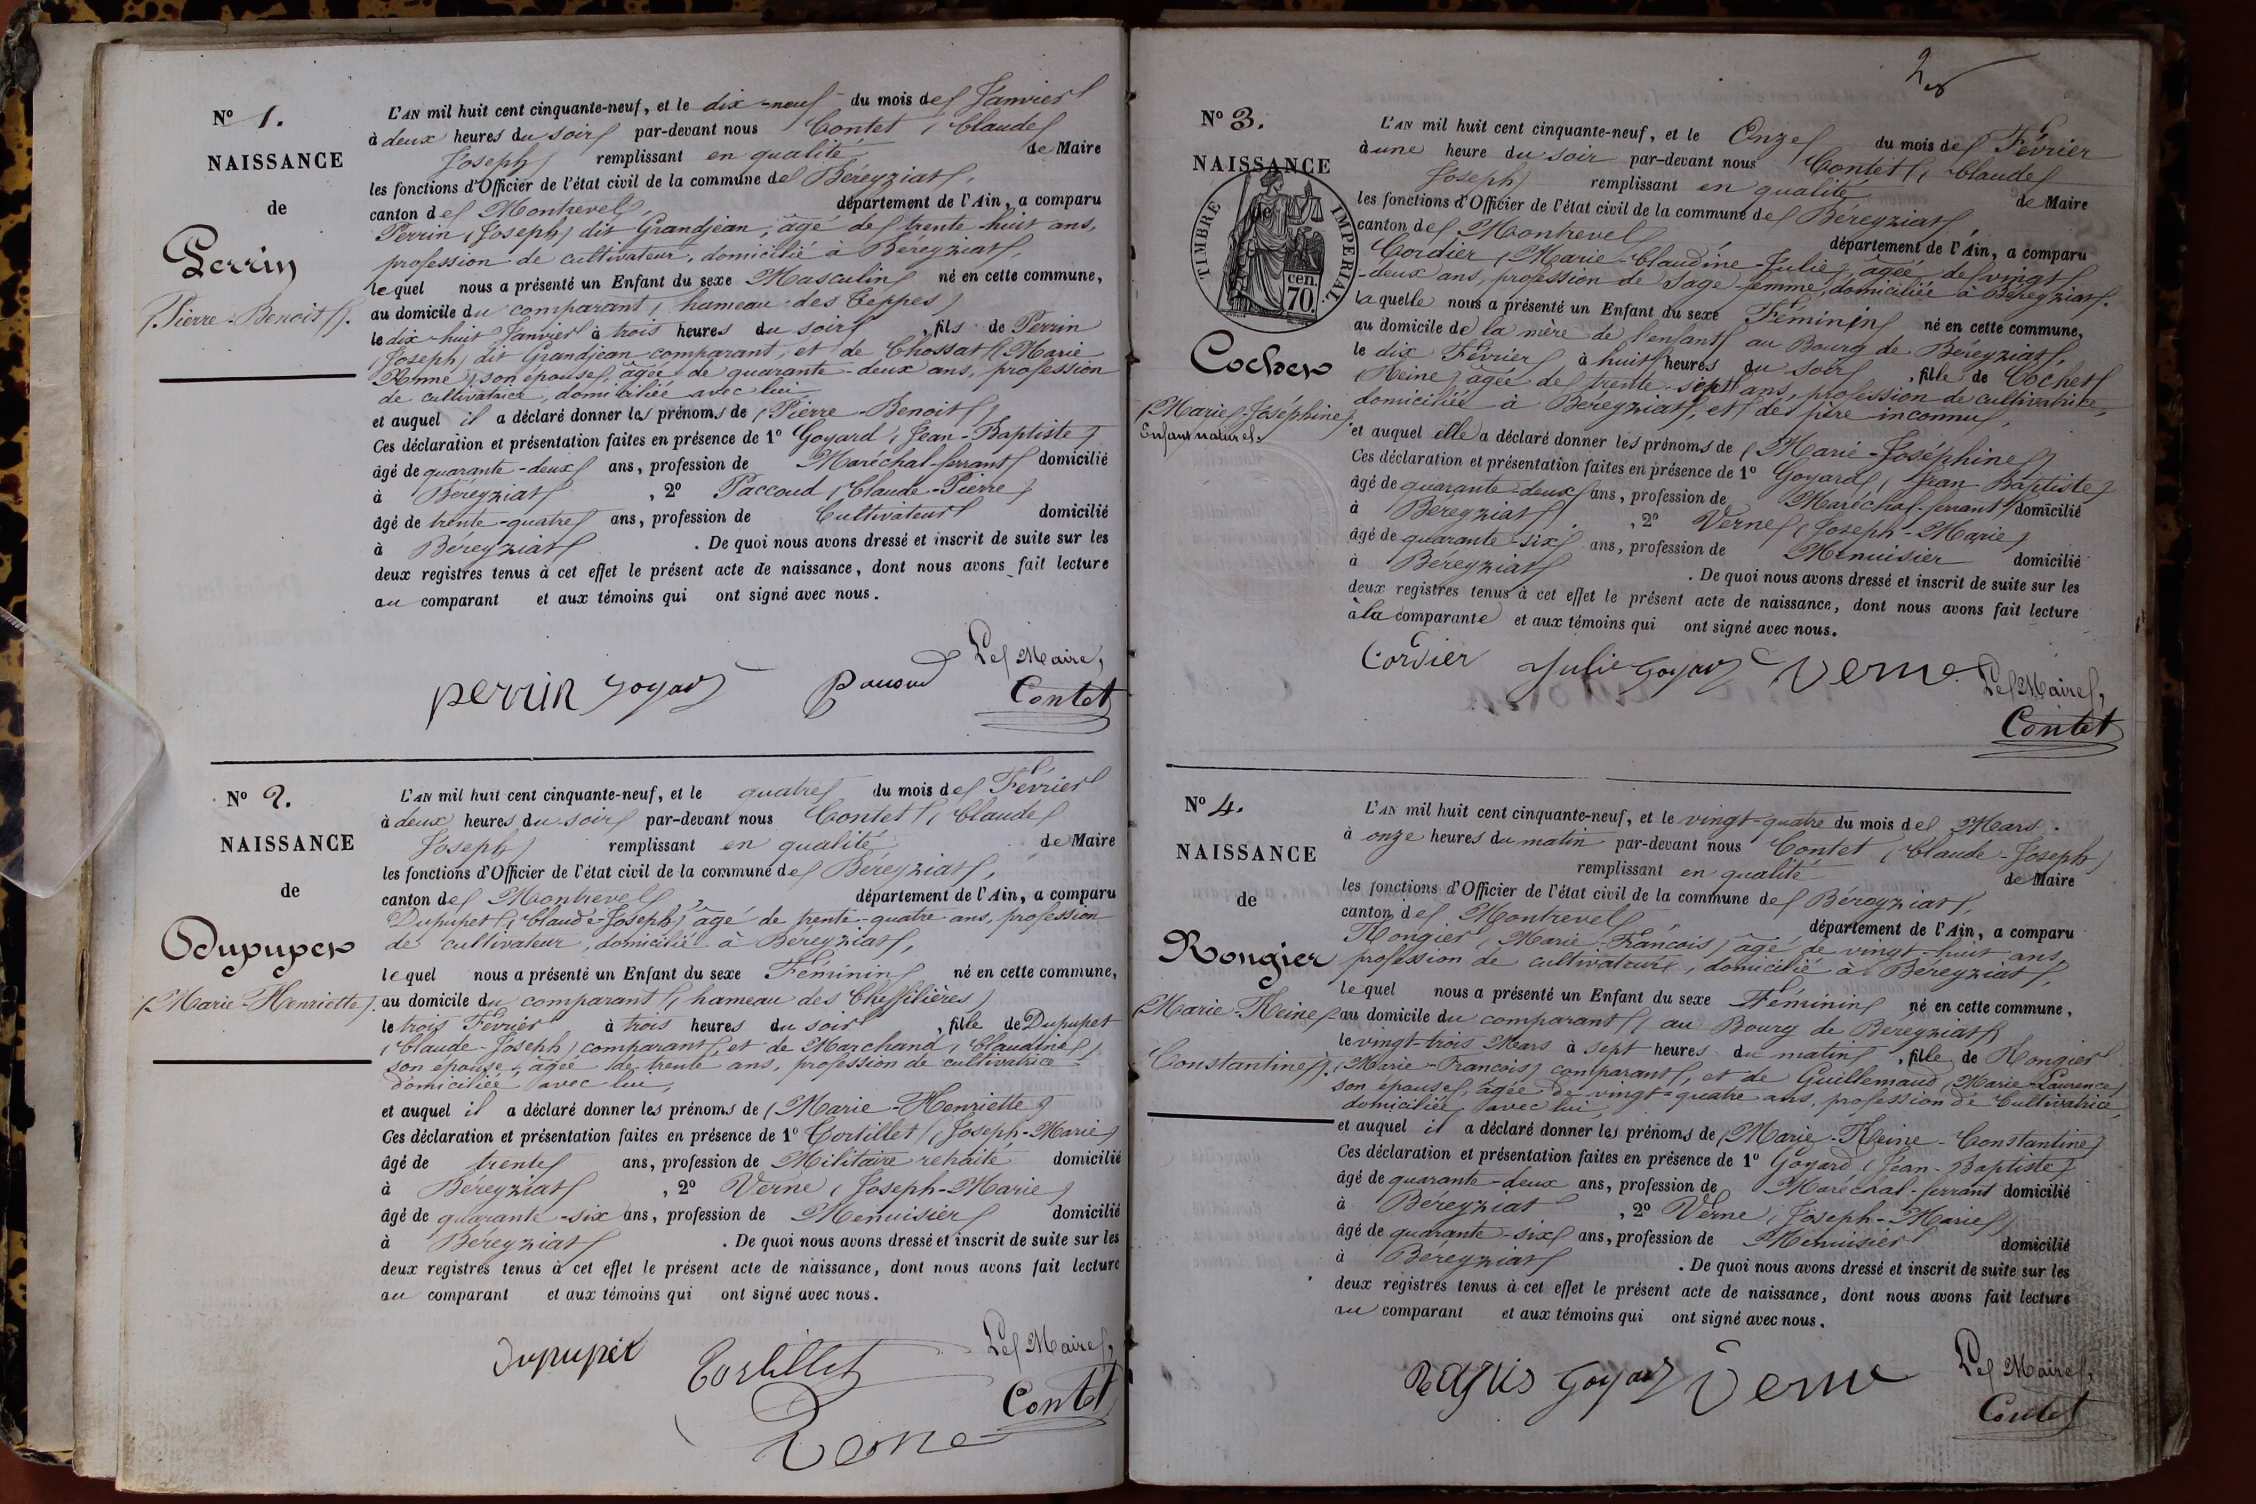 N° 1.
NAISSANCE
de
Perrin
(Pierre-Benoit).
L'AN mil huit cent cinquante-neuf, et le dix-neuf du mois de Janvier
à deux heures du soir par-devant nous Contet (Claude
Joseph) remplissant en qualité de Maire
les fonctions d'Officier de l'état civil de la commune de Béreyziat,
canton de Montrevel, département de l'Ain, a comparu
Perrin (Joseph) dit Grandjean, âgé de trente-huit ans,
profession de cultivateur, domicilié à Béreyziat,
lequel nous a présenté un Enfant du sexe Masculin né en cette commune,
au domicile du comparant (hameau des Teppes)
le dix-huit Janvier à trois heures du soir, fils de Perrin
(Joseph) dit Grandjean comparant, et de Chossat (Marie
Anne) son épouse, âgée de quarante-deux ans, profession
de cultivatrice, domiciliée avec lui
et auquel il a déclaré donner les prénoms de (Pierre-Benoit)
Ces déclaration et présentation faites en présence de 1° Goyard (Jean-Baptiste)
âgé de quarante-deux ans, profession de Maréchal-ferrant domicilié
à Béreyziat, 2° Paccoud (Claude-Pierre)
âgé de trente-quatre ans, profession de Cultivateur domicilié
à Béreyziat. De quoi nous avons dressé et inscrit de suite sur les
deux registres tenus à cet effet le présent acte de naissance, dont nous avons fait lecture
au comparant et aux témoins qui ont signé avec nous.
Le Maire,
perrin goyard Paccoud Contet
N° 2.
NAISSANCE
de
Dupupet
(Marie-Henriette).
L'AN mil huit cent cinquante-neuf, et le quatre du mois de Février
à deux heures du soir par-devant nous Contet (Claude
Joseph) remplissant en qualité de Maire
les fonctions d'Officier de l'état civil de la commune de Béreyziat,
canton de Montrevel département de l'Ain, a comparu
Dupupet (Claude-Joseph) âgé de trente-quatre ans, profession
de cultivateur, domicilié à Béreyziat,
lequel nous a présenté un Enfant du sexe Féminin né en cette commune,
au domicile du comparant (hameau des Chessilières)
le trois Février à trois heures du soir, fille de Dupupet
(Claude-Joseph) comparant, et de Marchand (Claudine)
son épouse, âgée de trente ans, profession de cultivatrice
domiciliée avec lui,
et auquel il a déclaré donner les prénoms de (Marie-Henriette)
Ces déclaration et présentation faites en présence de 1° Cortillet (Joseph-Marie)
âgé de trente ans, profession de Militaire retraité domicilié
à Béreyziat, 2° Verne (Joseph-Marie)
âgé de quarante-six ans, profession de Menuisier domicilié
à Béreyziat. De quoi nous avons dressé et inscrit de suite sur les
deux registres tenus à cet effet le présent acte de naissance, dont nous avons fait lecture
au comparant et aux témoins qui ont signé avec nous.
Le Maire,
Dupupet Cortillet Contet
Verne
2
N° 3.
NAISSANCE
de
TIMBRE IMPERIAL.
70 cen.
Cochet
(Marie-Joséphine).
Enfant naturel.
L'AN mil huit cent cinquante-neuf, et le Onze du mois de Février
à une heure du soir par-devant nous Contet (Claude
Joseph) remplissant en qualité de Maire
les fonctions d'Officier de l'état civil de la commune de Béreyziat
canton de Montrevel département de l'Ain, a comparu
Cordier (Marie-Claudine-Julie), âgée de vingt
-deux ans, profession de Sage-femme, domiciliée à Béreyziat.
Laquelle nous a présenté un Enfant du sexe Féminin né en cette commune,
au domicile de la mère de l'enfant au Bourg de Béreyziat,
le dix Février à huit heures du soir, fille de Cochet
(Reine) âgée de trente-sept ans, profession de cultivatrice,
domiciliée à Béreyziat, et de père inconnu,
et auquel elle a déclaré donner les prénoms de (Marie-Joséphine)
Ces déclaration et présentation faites en présence de 1° Goyard (Jean Baptiste)
âgé de quarante-deux ans, profession de Maréchal-ferrant domicilié
à Béreyziat, 2° Verne (Joseph-Marie)
âgé de quarante-six ans, profession de Menuisier domicilié
à Béreyziat. De quoi nous avons dressé et inscrit de suite sur les
deux registres tenus à cet effet le présent acte de naissance, dont nous avons fait lecture
à la comparante et aux témoins qui ont signé avec nous.
Cordier Julie goyard Verne Le Maire,
Contet
N° 4.
NAISSANCE
de
Rongier
(Marie-Reine
Constantine).
L'AN mil huit cent cinquante-neuf, et le vingt-quatre du mois de Mars.
à onze heures du matin par-devant nous Contet (Claude-Joseph)
remplissant en qualité de Maire
les fonctions d'Officier de l'état civil de la commune de Béreyziat,
canton de Montrevel département de l'Ain, a comparu
Rongier (Marie-François) âgé de vingt-huit ans,
profession de cultivateur, domicilié à Béreyziat,
lequel nous a présenté un Enfant du sexe Féminin né en cette commune,
au domicile du comparant (au Bourg de Béreyziat)
le vingt-trois Mars à sept heures du matin, fille de Rongier
(Marie-François) comparant, et de Guillemaud (Marie-Laurence)
son épouse, âgée de vingt-quatre ans, profession de Cultivatrice
domiciliée avec lui,
et auquel il a déclaré donner les prénoms de (Marie-Reine-Constantine)
Ces déclaration et présentation faites en présence de 1° Goyard (Jean-Baptiste)
âgé de quarante-deux ans, profession de Maréchal-ferrant domicilié
à Béreyziat, 2° Verne (Joseph-Marie)
âgé de quarante-six ans, profession de Menuisier domicilié
à Béreyziat. De quoi nous avons dressé et inscrit de suite sur les
deux registres tenus à cet effet le présent acte de naissance, dont nous avons fait lecture
au comparant et aux témoins qui ont signé avec nous.
Le Maire,
goyard Verne Contet